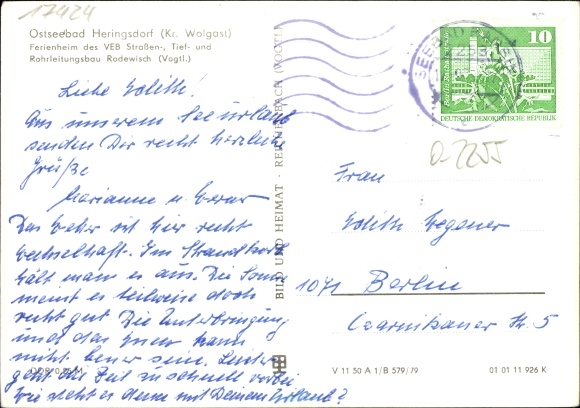 17424
Ostseebad Heringsdorf (Kr. Wolgast)
Ferienheim des VEB Straßen-, Tief- und
Rohrleitungsbau Rodewisch (Vogtl.)
Liebe Edith!
Aus unserem Seeurlaub
senden Dir recht herzliche
Grüße
Marianne u. Werner
Das Wetter ist hier recht
wechselhaft. Im Strandkorb
hält man es aus. Die Sonne
meint es teilweise doch
recht gut. Die Unterbringung
und das Essen kann
nicht besser sein. Leider
geht die Zeit zu schnell vorbei
Wie steht es denn mit Deinem Urlaub?
DDR 0,25 M
BILD UND HEIMAT · REICHENBACH (VOGTL)
SEEBAD
10
DEUTSCHE DEMOKRATISCHE REPUBLIK
O-2255
Frau
Edith Wegener
1071 Berlin
Czarnikauer Str. 5
V 11 50 A 1/B 579/79
01 01 11 926 K